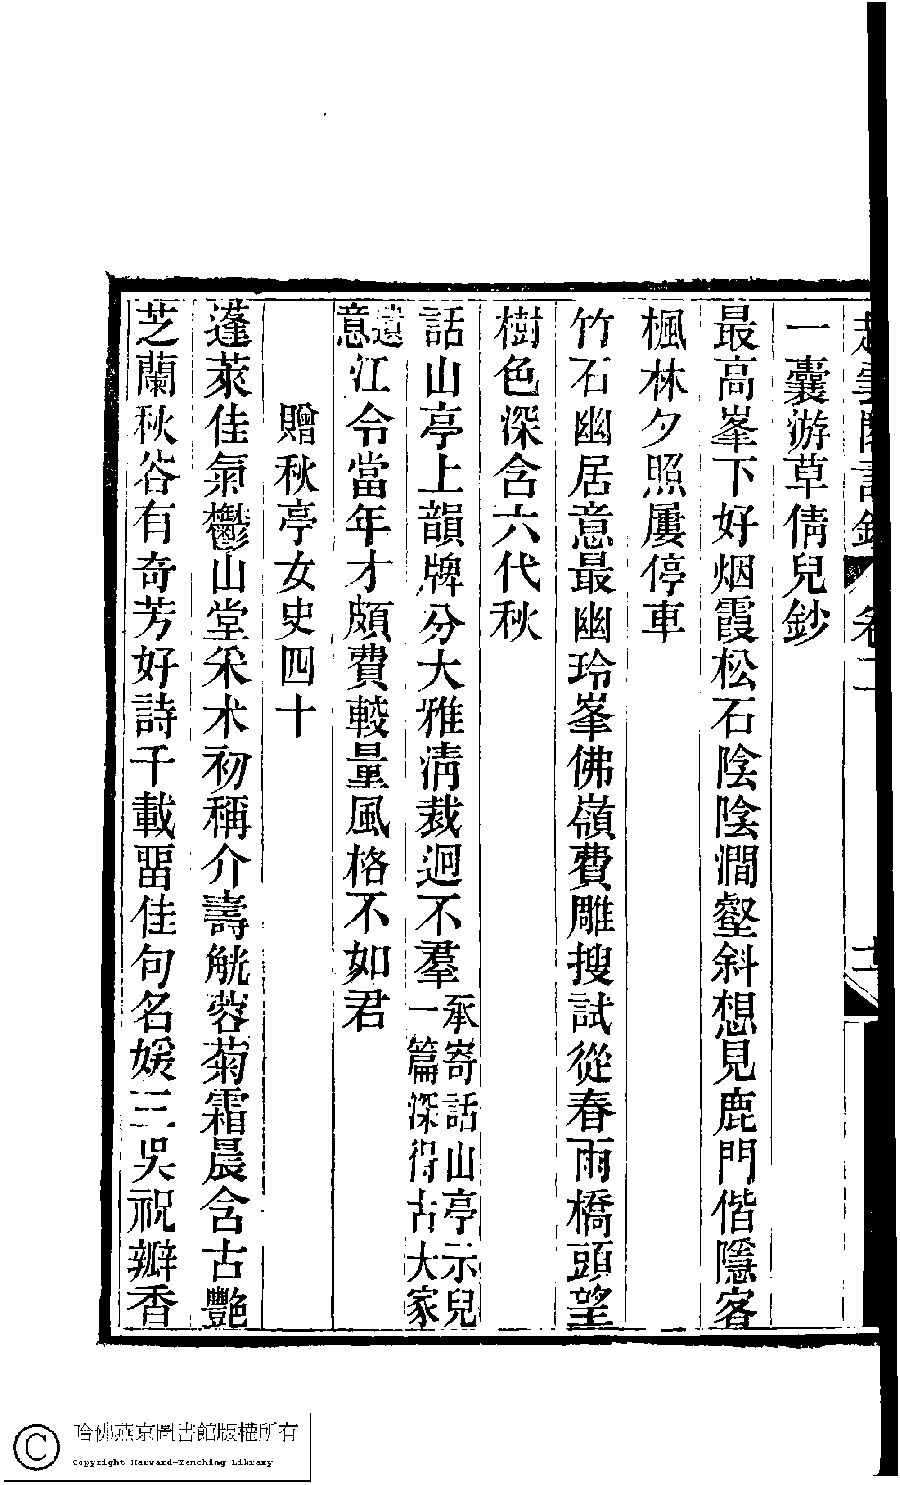 一囊游草倩兒鈔
最高峯下好烟霞松石陰陰澗壑斜想見鹿門偕隱客
楓林夕照屢停車
竹石幽居意最幽玲峯佛嶺費雕搜試從春雨橋頭望
樹色深含六代秋
話山亭上韻牌分大雅淸裁迥不羣承寄話山亭示兒一篇深得古大家
遺意江令當年才頗費較量風格不如君
贈秋亭女史四十
蓬萊佳氣鬱山堂采朮初稱介壽觥蓉菊霜晨含古艷
芝蘭秋谷有奇芳好詩千載畱佳句名媛三吳祝瓣香
卷二
哈佛燕京圖書館版權所有
Copyright Harvard-Yenching Library